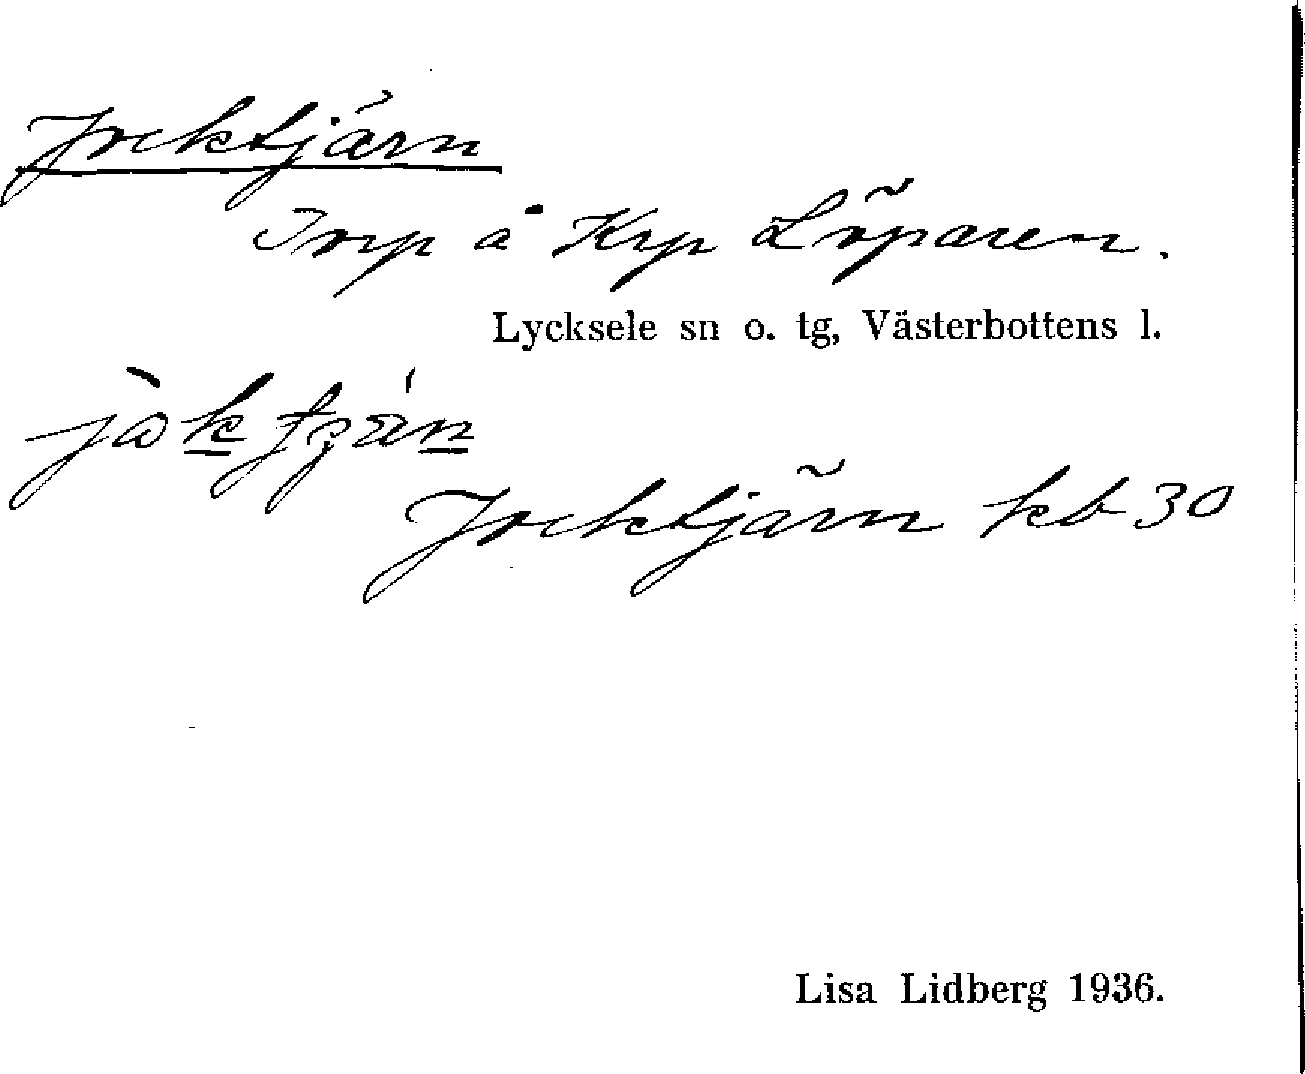 Jocktjärn
Torp å Krp Löparen.
Lycksele sn o. tg, Västerbottens l.
Jocktjärn kb 30
Lisa Lidberg 1936.